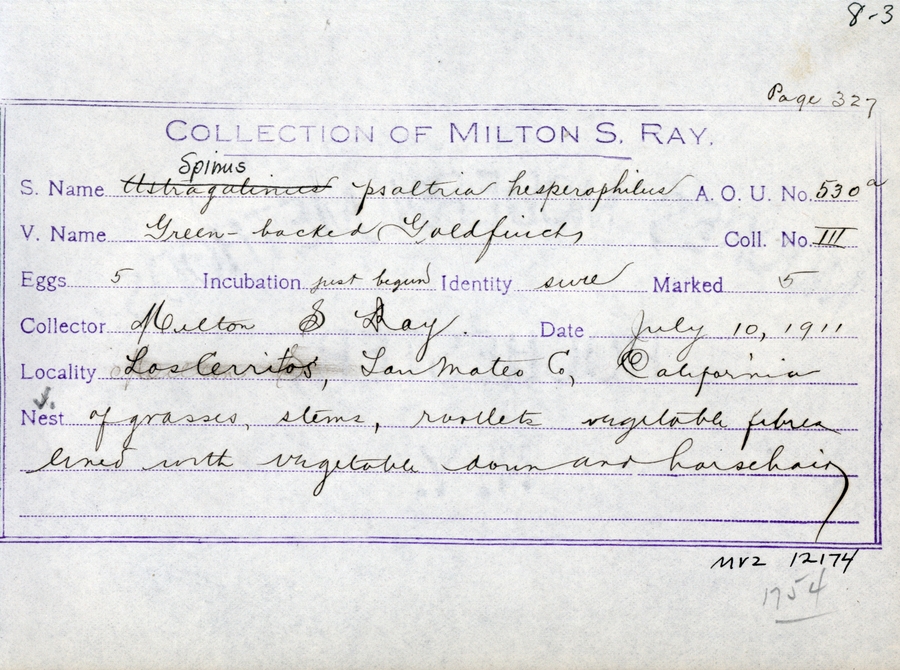 8-3
Page 327
COLLECTION OF MILTON S. RAY.
Spinus
S. Name Astragalinus psaltria hesperophilus A. O. U. No. 530a
V. Name Green-backed Goldfinch Coll. No. III
Eggs 5 Incubation just begun Identity sure Marked 5
Collector Milton S Ray. Date July 10, 1911
Locality Los Cerritos, San Mateo Co, California
Nest of grasses, stems, rootlets vegetable fibres
lined with vegetable down and horsehair
MVZ 12174
1754